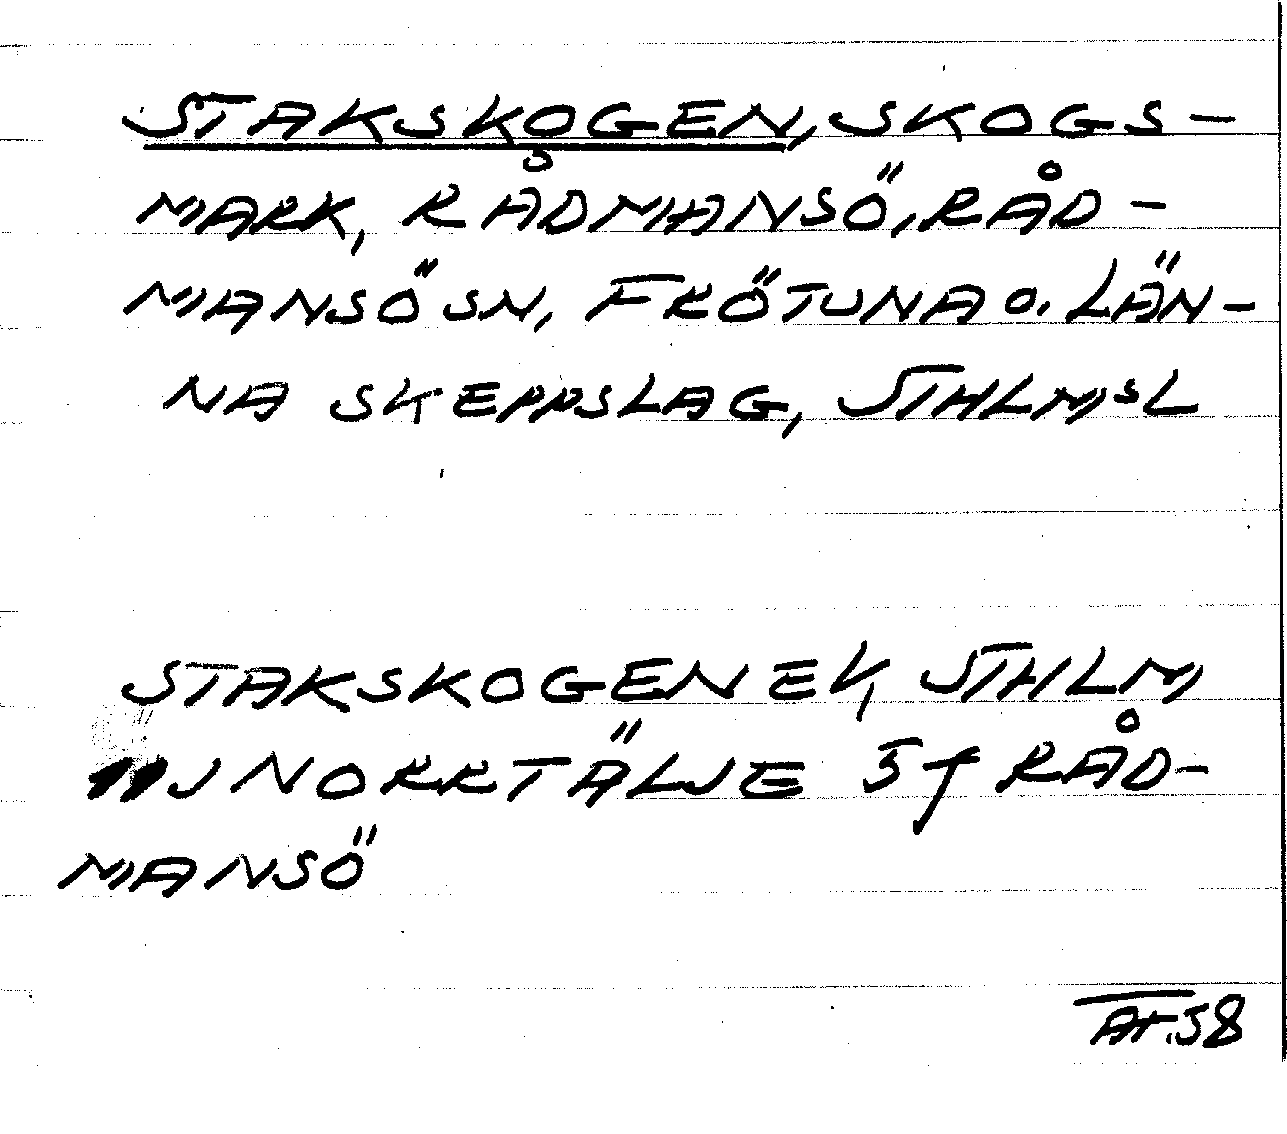 STAKSKOGEN, SKOGS-
MARK, RÅDMANSÖ, RÅD-
MANSÖ SN, FRÖTUNA O. LÄN-
NA SKEPPSLAG, STHLMSL
STAKSKOGEN EK, STHLM
NJ NORRTÄLJE 5f RÅD-
MANSÖ